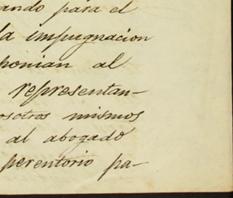 ando para el
la impugnacion
ponian al
representan-
osotros mismos
al abogado
perentorio pa-